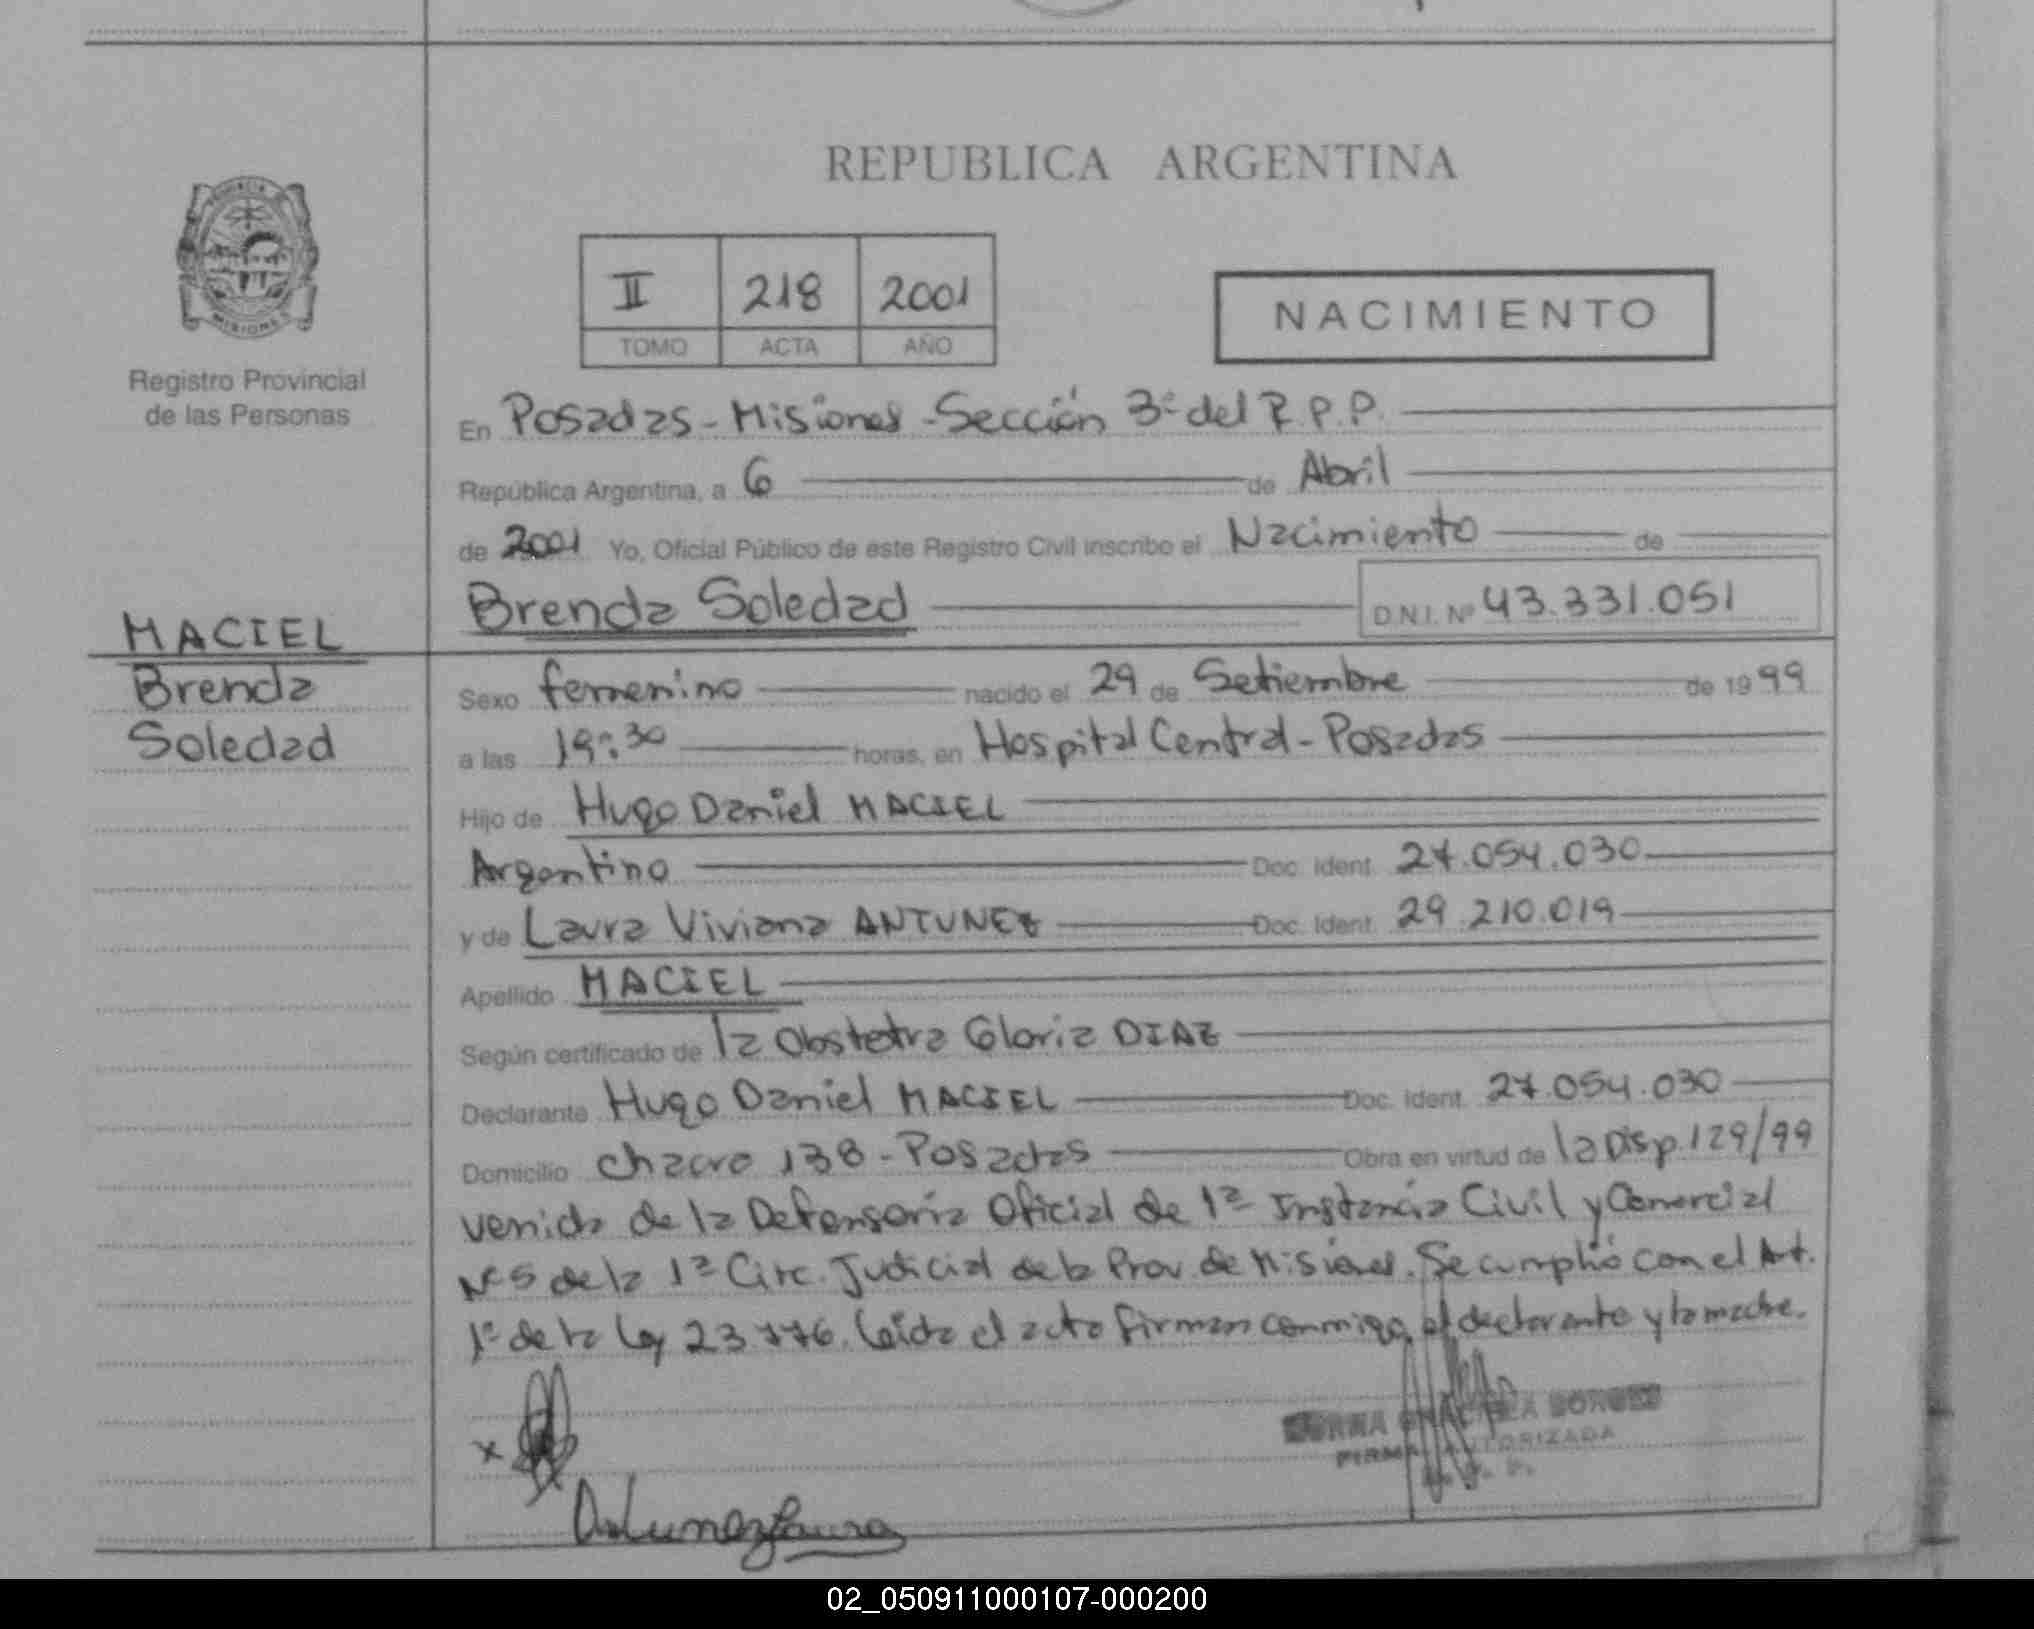 REPUBLICA ARGENTINA
PROVINCIA
MISIONES
Registro Provincial
de las Personas
II 218 2001
TOMO ACTA AÑO
NACIMIENTO
En Posadas - Misiones - Sección 3ª del R.P.P.
República Argentina, a 6 de Abril
de 2001 Yo, Oficial Público de este Registro Civil inscribo el Nacimiento de
Brenda Soledad D.N.I. Nº 43.331.051
MACIEL
Brenda
Soledad
Sexo femenino nacido el 29 de Setiembre de 1999
a las 19:30 horas, en Hospital Central - Posadas
Hijo de Hugo Daniel MACIEL
Argentino Doc. Ident. 27.054.030
y de Laura Viviana ANTUNEZ Doc. Ident. 29.210.019
Apellido MACIEL
Según certificado de la Obstetra Gloria DIAZ
Declarante Hugo Daniel MACIEL Doc. Ident. 27.054.030
Domicilio chacra 138 - Posadas Obra en virtud de la Disp. 129/99
venida de la Defensoría Oficial de 1ª Instancia Civil y Comercial
Nº 5 de la 1ª Circ. Judicial de la Prov. de Misiones. Se cumplió con el Art.
1º de la Ley 23.776. Leída el acta firman conmigo, el declarante y la madre.
x
Antunez Laura
GRACIELA
FIRMA AUTORIZADA
02_050911000107-000200